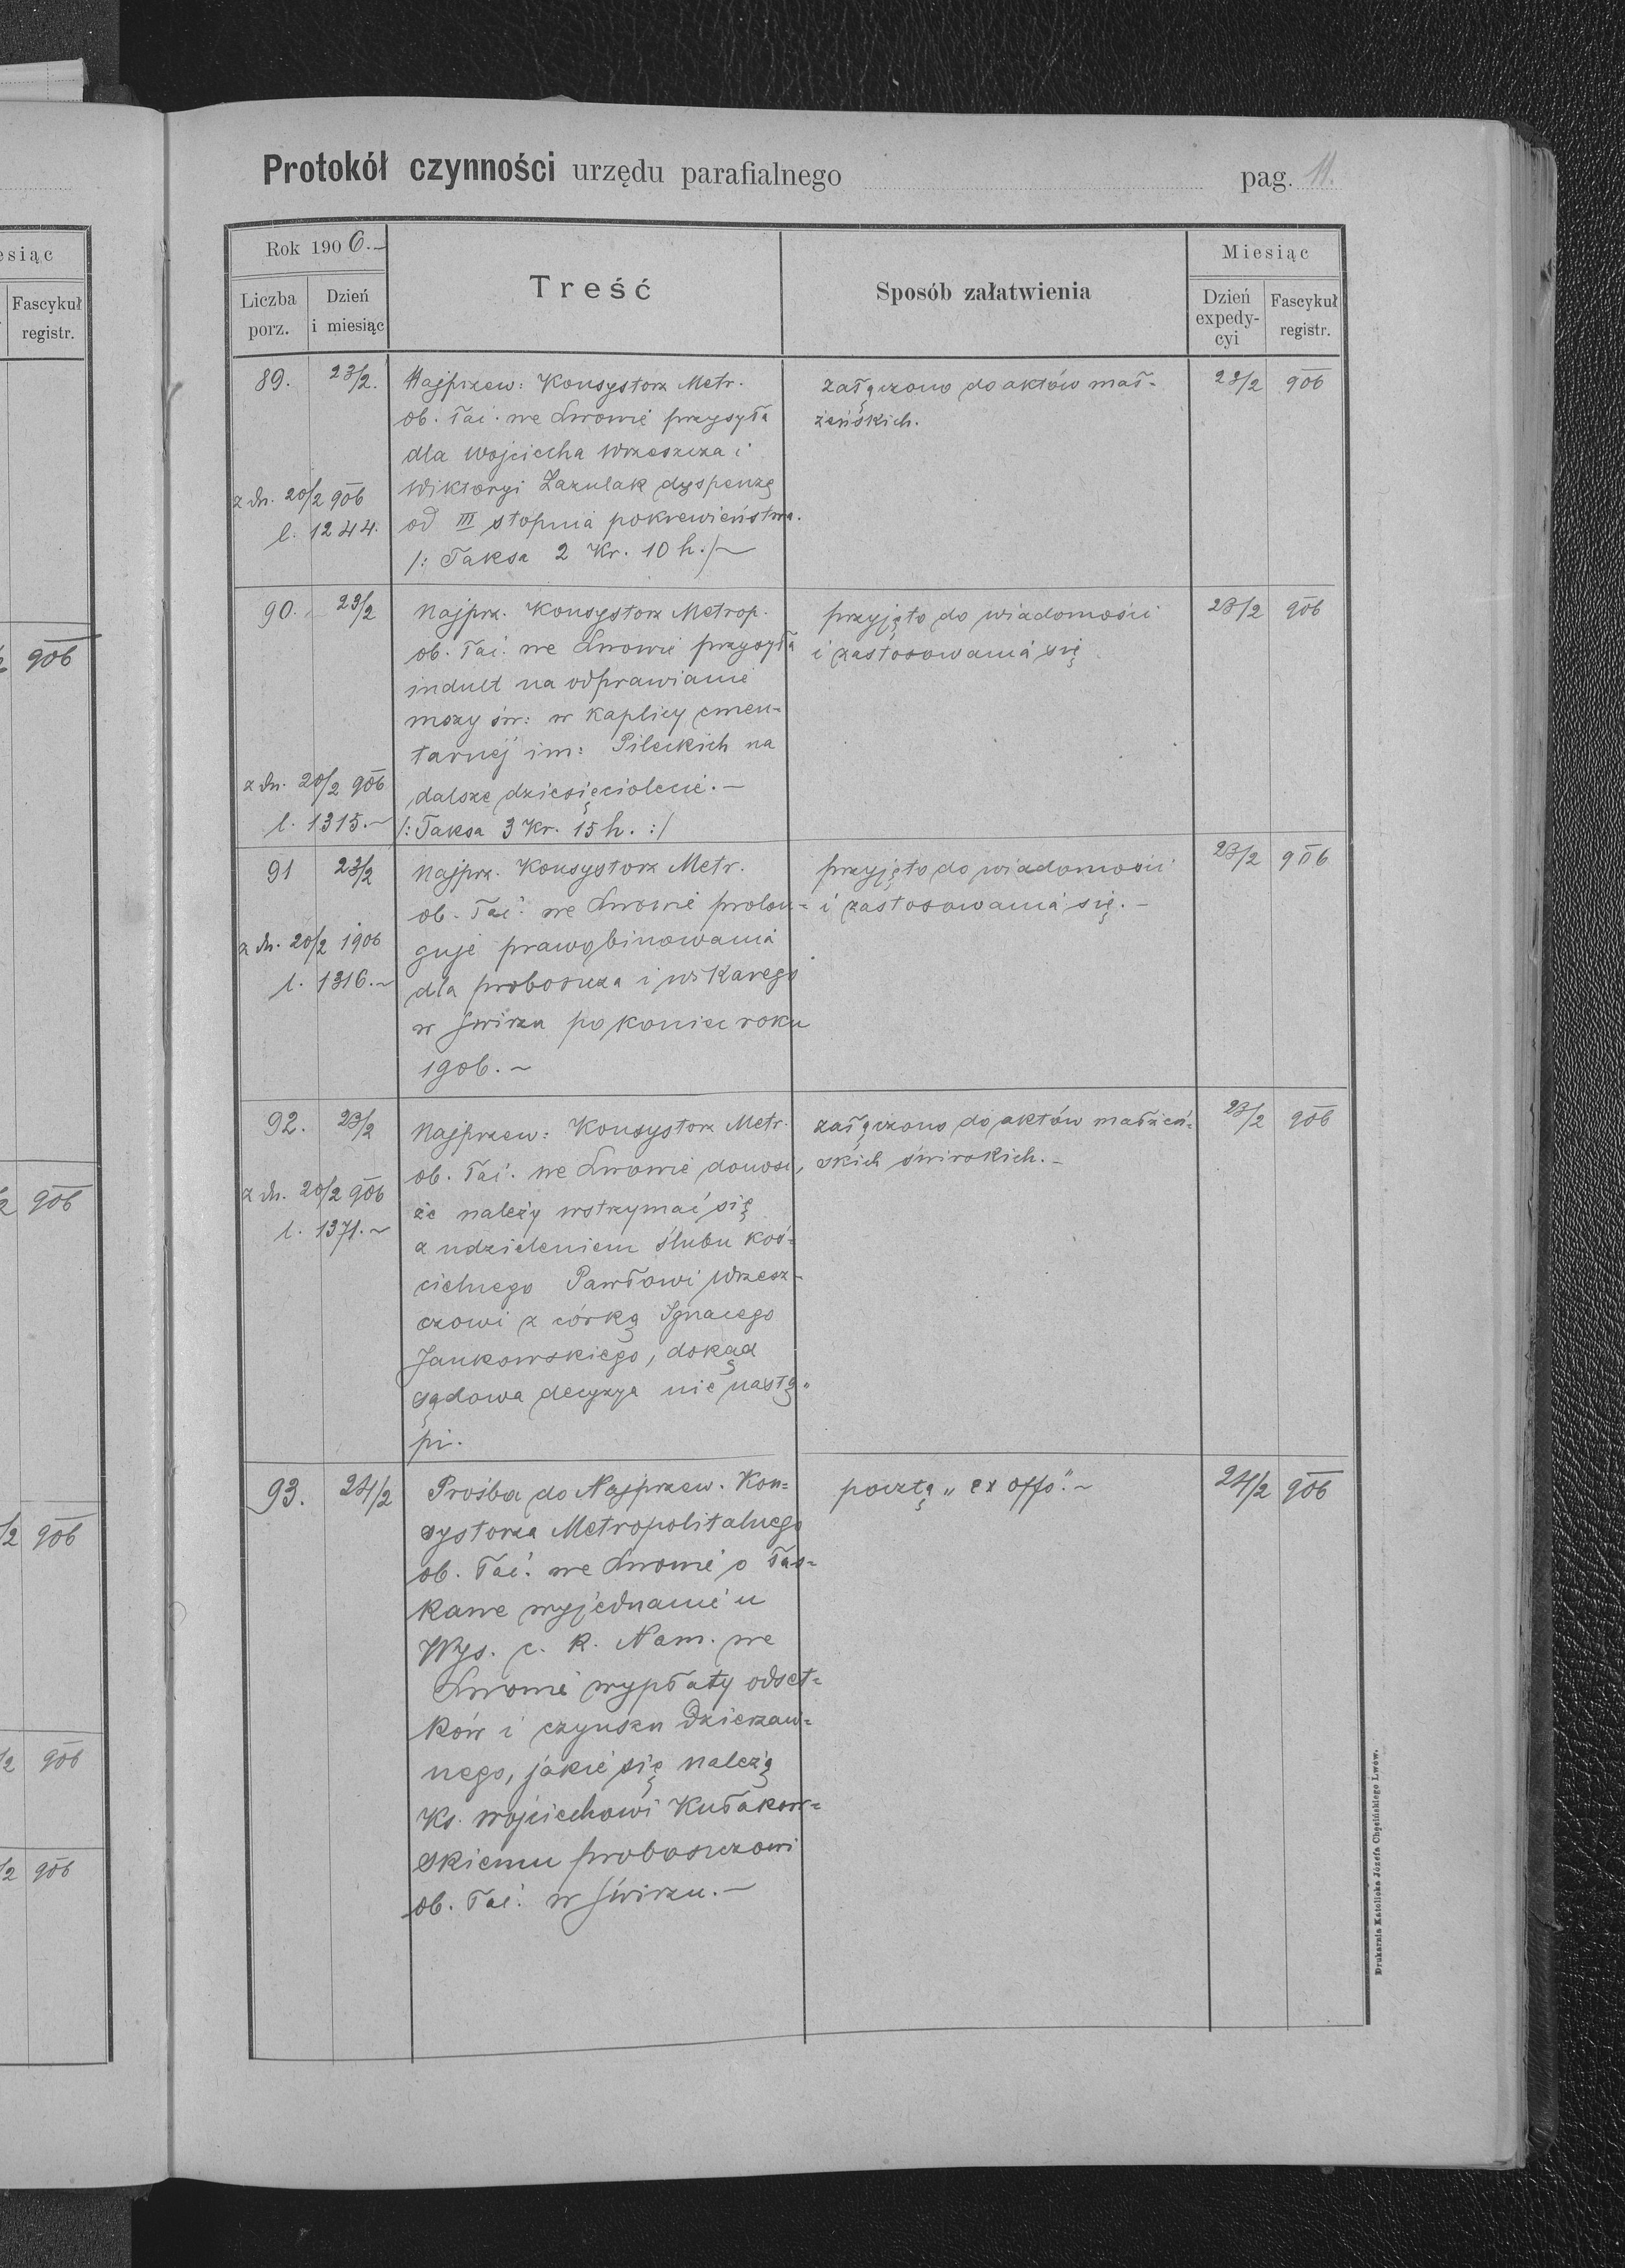 Protokół czynności urzędu parafialnego
pag. 11.
Rok 1906.–
Liczba porz.
Dzień i miesiąc
Treść
Sposób załatwienia
Miesiąc
Dzień expedycyi
Fascykuł registr.
89. 23/2.
z dn. 20/2 906
l. 1244.
Najprzew: Konsystorz Metr.
ob. łać. we Lwowie przysyła
dla Wojciecha Wrzeszcza i
Wiktoryi Łazulak dyspenzę
od III stopnia pokrewieństwa.
/: Taksa 2 Kr. 10 h. /~
załączono do aktów mał-
żeńskich.
23/2 906
90. 23/2
z dn. 20/2 906
l. 1315.~
Najprz. Konsystorz Metrop.
ob. łać. we Lwowie przysyła
indult na odprawianie
mszy św: w kaplicy cmen-
tarnej im: Pileckich na
dalsze dziesięciolecie.–
/: Taksa 3 Kr. 15 h. :/
przyjęto do wiadomości
i zastosowania się
23/2 906
91 23/2
z dn. 20/2 1906
l. 1316.~
Najprz. Konsystorz Metr.
ob. łać. we Lwowie prolon-
guje prawo binowania
dla proboszcza i wikarego
w Świrzu po koniec roku
1906.~
przyjęto do wiadomości
i zastosowania się.–
23/2 906
92. 23/2
z dn. 20/2 906
l. 1371.~
Najprzew: Konsystorz Metr.
ob. łać. we Lwowie donosi,
że należy wstrzymać się
z udzieleniem ślubu koś-
cielnego Pawłowi Wrzesz-
czowi z córką Ignacego
Jankowskiego, dokąd
sądowa decyzya nie nastą-
pi.
załączono do aktów małżeń-
skich świrskich.–
23/2 906
93. 24/2
Prośba do Najprzew. Kon-
systorza Metropolitalnego
ob. łać. we Lwowie o łas-
kawe wyjednanie u
Wys. c. k. Nam. we
Lwowie wypłaty odset-
ków i czynszu dzierżaw-
nego, jakie się należą
Ks. Wojciechowi Kułakow-
skiemu proboszczowi
ob. łać. w Świrzu.–
pocztą „ex offo".~
24/2 906
Drukarnia Katolicka Józefa Chęcińskiego Lwów.
esiąc
Fascykuł
registr.
906
906
/2 906
/2 906
/2 906